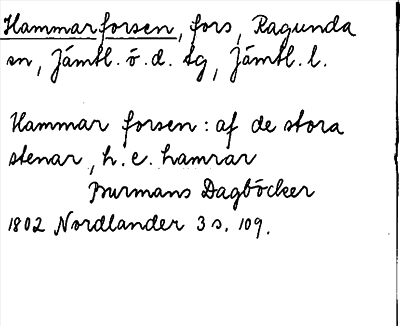 Hammarforsen, fors, Ragunda
sn, Jämtl. ö. d. tg, Jämtl. l.
Hammar forsen: af de stora
stenar, h. e. hamrar
Burmans Dagböcker
1802 Nordlander 3 s. 109.